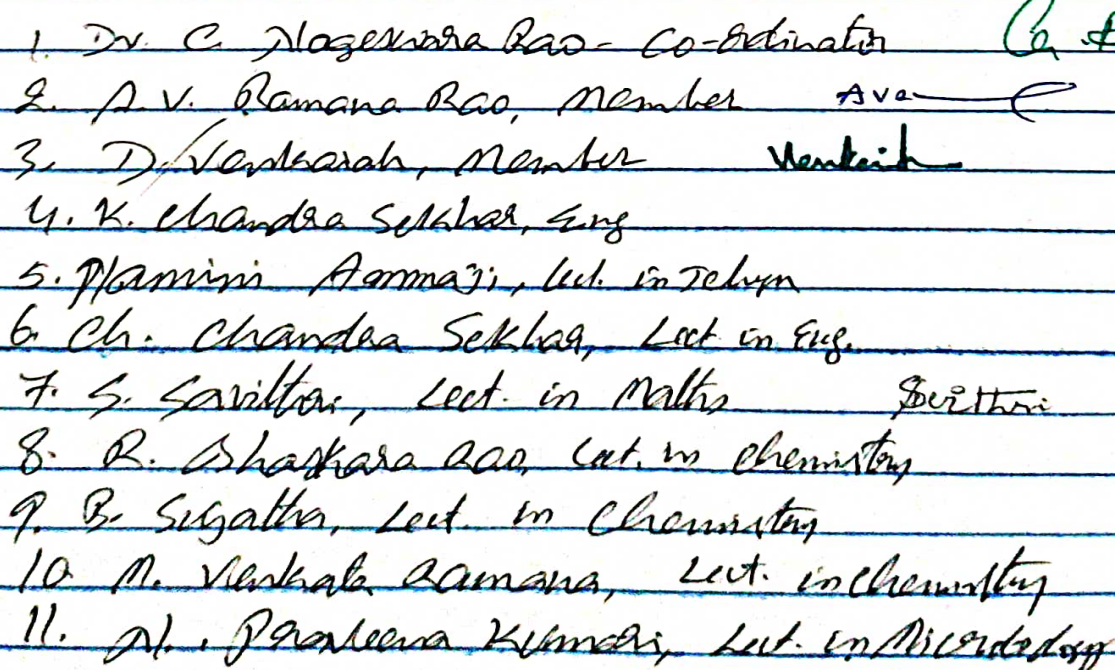 1. Dr. C. Nageswara Rao - Co-ordinator
2. A. V. Ramana Rao, Member Ava
3. D. Venkaiah, Member Venkaiah
4. K. Chandra Sekhar, Eng
5. Ammaji, Lect. in Telugu
6. Ch. Chandra Sekhar, Lect in Eng.
7. S. Savithri, Lect. in Maths Savithri
8. R. Bhaskara Rao, Lect. in Chemistry
9. B. Sujatha, Lect. in Chemistry
10. M. Venkata Ramana, Lect. in Chemistry
11. N. Praveena Kumari, Lect. in Microbiology